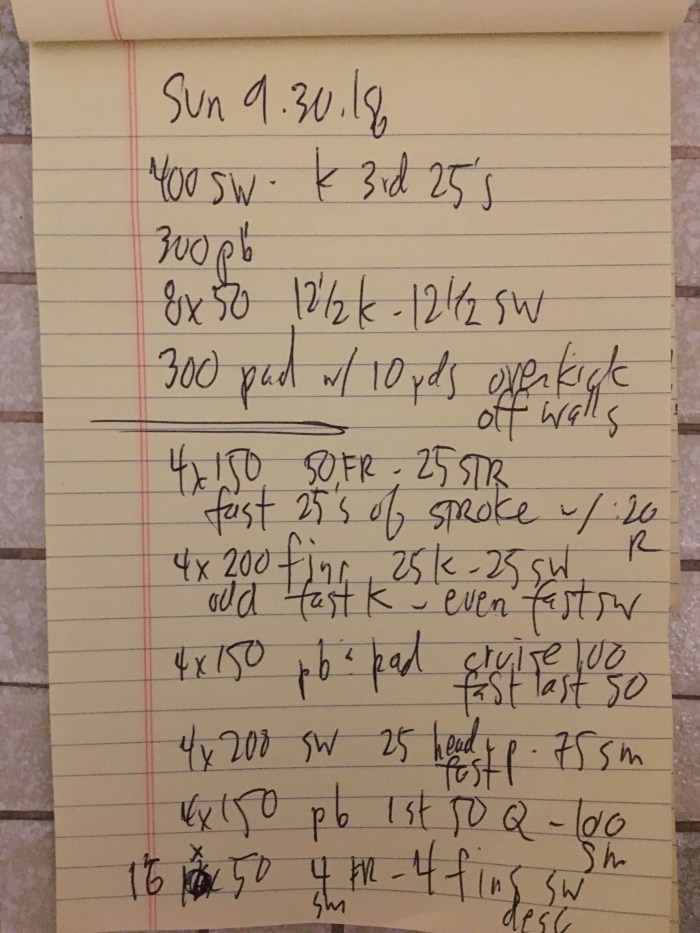 Sun 9.30.18
400 SW. K 3rd 25's
300 pb
8x50 12 1/2 K - 12 1/2 SW
300 pad w/ 10 yds overkick
off walls
4x150 50 FR - 25 STR
fast 25's of STROKE w/ :20
R
4x200 fins 25K - 25 SW
odd fast K - even fast SW
4x150 pb & pad cruise 100
fast last 50
4x200 SW 25 head up
fast - 75 sm
4x150 pb 1st 50 Q - 100
sm
16 x 50 4 FR - 4 fins SW
sm desc